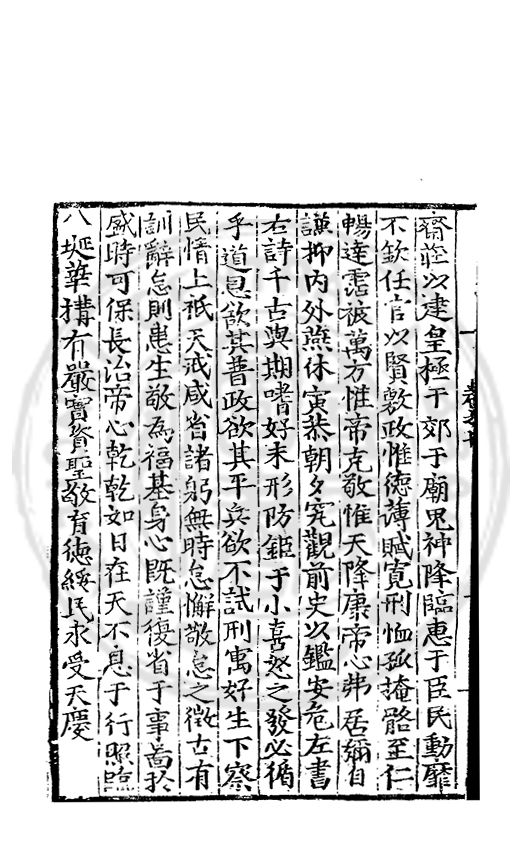 齋莊以建皇極于郊于廟鬼神降臨惠于臣民動靡
不欽任官以賢敷政惟德薄賦寬刑恤孤掩骼至仁
暢達霑被萬方惟帝克敬惟天降康帝心弗居彌自
謙抑內外燕休寅恭朝夕究觀前史以鑑安危左書
右詩千古與期嗜好未形防鉅于小喜怒之發必循
乎道恩欲其普政欲其平兵欲不試刑寓好生下察
民情上祇天戒咸省諸躬無時怠懈敬怠之徵古有
訓辭怠則患生敬為福基身心既謹復省于事啚於
盛時可保長治帝心乾乾如日在天不息于行照臨
八埏華構有嚴寶資聖敬育德綏民永受天慶